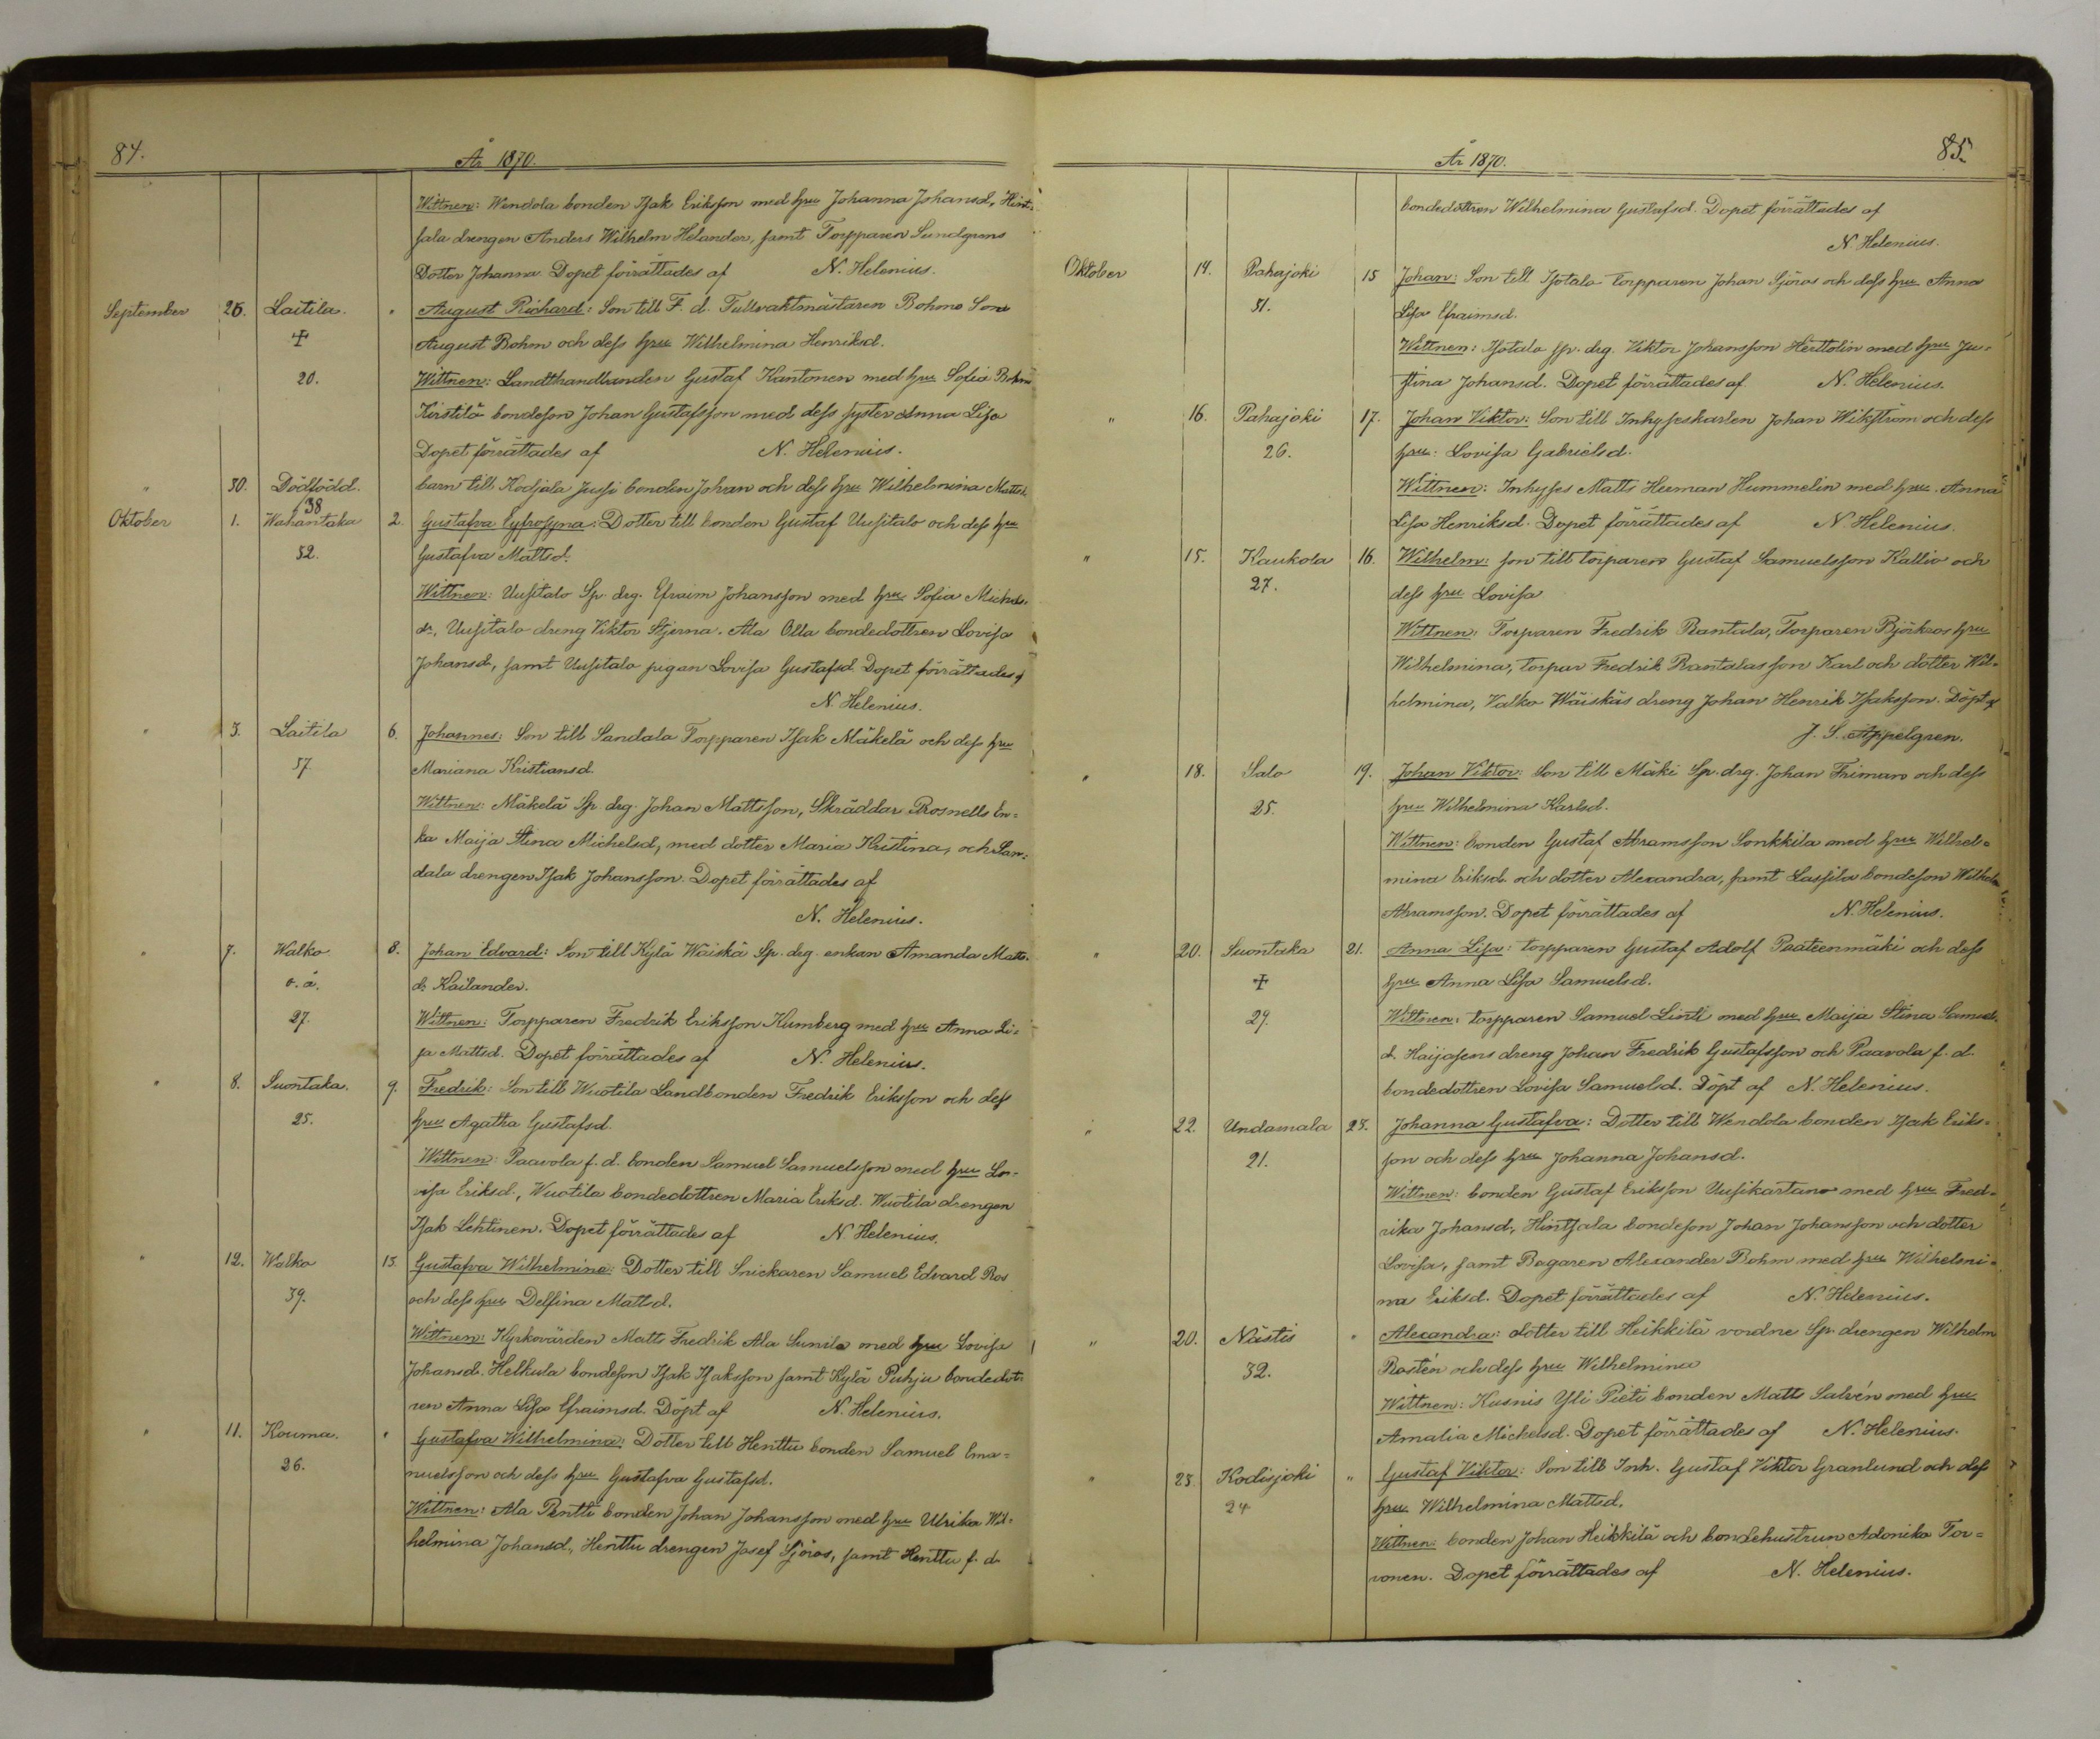 84.
År 1870.
Wittnen: Wendola bonden Isak Eriksson med hru Johanna Johansd, Hint-
sala drengen Anders Wilhelm Helander, samt Torpparen Sundgrens
Dotter Johanna. Dopet förrättades af N. Helenius.
September 26. Laitila. " August Richard: Son till F. d. Tullvaktmästaren Bohms Son
+ August Bohm och dess hru Wilhelmina Henriksd.
20. Wittnen: Landthandlanden Gustaf Kantonen med hru Sofia Bohm
Kirstilä bondeson Johan Gustafsson med dess syster Anna Lisa
Dopet förrättades af N. Helenius.
" 30. Dödfödd. barn till Kodjala Jussi bonden Johan och dess hru Wilhelmina Mattsd.
38
Oktober 1. Wahantaka 2. Gustafva Eyfrosyna: Dotter till bonden Gustaf Uusitalo och dess hru
32. Gustafva Mattsd.
Wittnen: Uusitalo Sp. drg. Efraim Johansson med hru Sofia Michels-
dr, Uusitalo dreng Viktor Stjerna. Ala Olla bondedottren Lovisa
Johansd, samt Uusitalo pigan Lovisa Gustafsd Dopet förrättades af
N. Helenius.
" 3. Laitila 6. Johannes: Son till Sandala Torpparen Isak Mäkelä och dess hru
37. Mariana Kristiansd.
Wittnen: Mäkelä Sp drg. Johan Mattsson, Skräddar Rosnells En-
ka Maija Stina Michelsd, med dotter Maria Kristina, och San-
dala drengen Isak Johansson. Dopet förrättades af
N. Helenius.
" 7. Walko 8. Johan Edvard: Son till Kylä Wäiskä Sp. drg. enkan Amanda Matts-
o. ä. d. Kailander.
27. Wittnen: Torpparen Fredrik Eriksson Kumberg med hru Anna Li-
sa Mattsd. Dopet förrättades af N. Helenius.
" 8. Suontaka. 9. Fredrik: Son till Wuotila Landbonden Fredrik Eriksson och dess
25. hru Agatha Gustafsd.
Wittnen: Paavola f. d. bonden Samuel Samuelsson med hru Lo-
visa Eriksd., Wuotila bondedottren Maria Eriksd. Wuotila drengen
Isak Lehtinen. Dopet förrättades af N Helenius.
" 12. Walko 13. Gustafva Wilhelmina: Dotter till Snickaren Samuel Edvard Ros
39. och dess hru Delfina Mattsd.
Wittnen: Kyrkovärden Matts Fredrik Ala Sunila med hru Lovisa
Johansd. Helkula bondeson Isak Isaksson samt Kylä Puhju bondedot-
ren Anna Lisa Efraimsd. Döpt af N. Helenius.
" 11. Kouma. " Gustafva Wilhelmina: Dotter till Henttu bonden Samuel Ema-
26. nuelsson och dess hru Gustafva Gustafsd.
Wittnen: Ala Pentti bonden Johan Johansson med hru Ulrika Wil-
helmina Johansd., Henttu drengen Josef Sjöros, samt Henttu f. d.
85.
År 1870.
bondedottren Wilhelmina Gustafsd. Dopet förrättades af
N. Helenius.
Oktober 14. Pahajoki 15 Johan: Son till Isotalo torpparen Johan Sjöros och dess hru Anna
51. Lisa Efraimsd.
Wittnen: Isotalo sp. drg. Viktor Johansson Herttolin med hru Ju-
stina Johansd. Dopet förrättades af N. Helenius.
" 16. Pahajoki 17. Johan Viktor: Son till Inhysseskarlen Johan Wikström och dess
26. hru: Lovisa Gabrielsd.
Wittnen: Inhyses Matts Heeman Hummelin med hru. Anna
Lisa Henriksd. Dopet förrättades af N. Helenius.
" 15. Kaukola 16. Wilhelm: son till torparen Gustaf Samuelsson Kallio och
27. dess hru Lovisa
Wittnen: Torparen Fredrik Rantala, Torparen Björkros hru
Wilhelmina, torpar Fredrik Rantalas son Karl och dotter Wil-
helmina, Valko Wäiskäs dreng Johan Henrik Isaksson. Döpt af
J. S. Appelgren.
" 18. Salo 19. Johan Viktor: Son till Mäki Sp. drg. Johan Friman och dess
25. hru Wilhelmina Karlsd.
Wittnen: bonden Gustaf Abramsson Sonkkila med hru Wilhel-
mina Eriksd. och dotter Alexandra, samt Lassila bondeson Wilhelm
Abramsson. Dopet förrättades af N. Helenius.
" 20. Suontaka 21. Anna Lisa: torpparen Gustaf Adolf Paateenmäki och dess
+ hru Anna Lisa Samuelsd.
29. Wittnen: torpparen Samuel Linti med hru Maija Stina Samuels-
d. Haijasens dreng Johan Fredrik Gustafsson och Paavola f. d.
bondedottren Lovisa Samuelsd. Döpt af N. Helenius.
" 22. Undamala 23. Johanna Gustafva: Dotter till Wendola bonden Isak Eriks-
21. son och dess hru Johanna Johansd.
Wittnen: bonden Gustaf Eriksson Uusikartano med hru Fred-
rika Johansd, Hintsala bondeson Johan Johansson och dotter
Lovisa, samt Bagaren Alexander Bohm med hru Wilhelmi-
na Eriksd. Dopet förrättades af N. Helenius.
" 20. Nästis " Alexandra: dotter till Heikkilä vordne Sp. drengen Wilhelm
32. Rostén och dess hru Wilhelmina
Wittnen: Kusnis Yli Pieti bonden Matts Salvén med hru
Amalia Michelsd. Dopet förrättades af N. Helenius.
" 23. Kodisjoki " Gustaf Viktor: Son till Inh. Gustaf Viktor Granlund och dess
24 hru Wilhelmina Mattsd.
Wittnen: bonden Johan Heikkilä och bondehustrun Adonika Tor-
vonen. Dopet förrättades af N. Helenius.